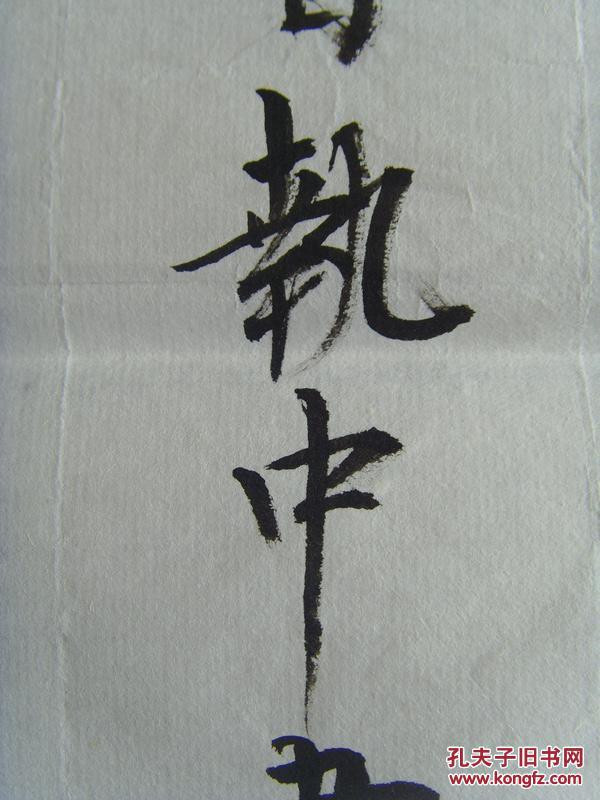 執中
孔夫子旧书网
www.kongfz.com